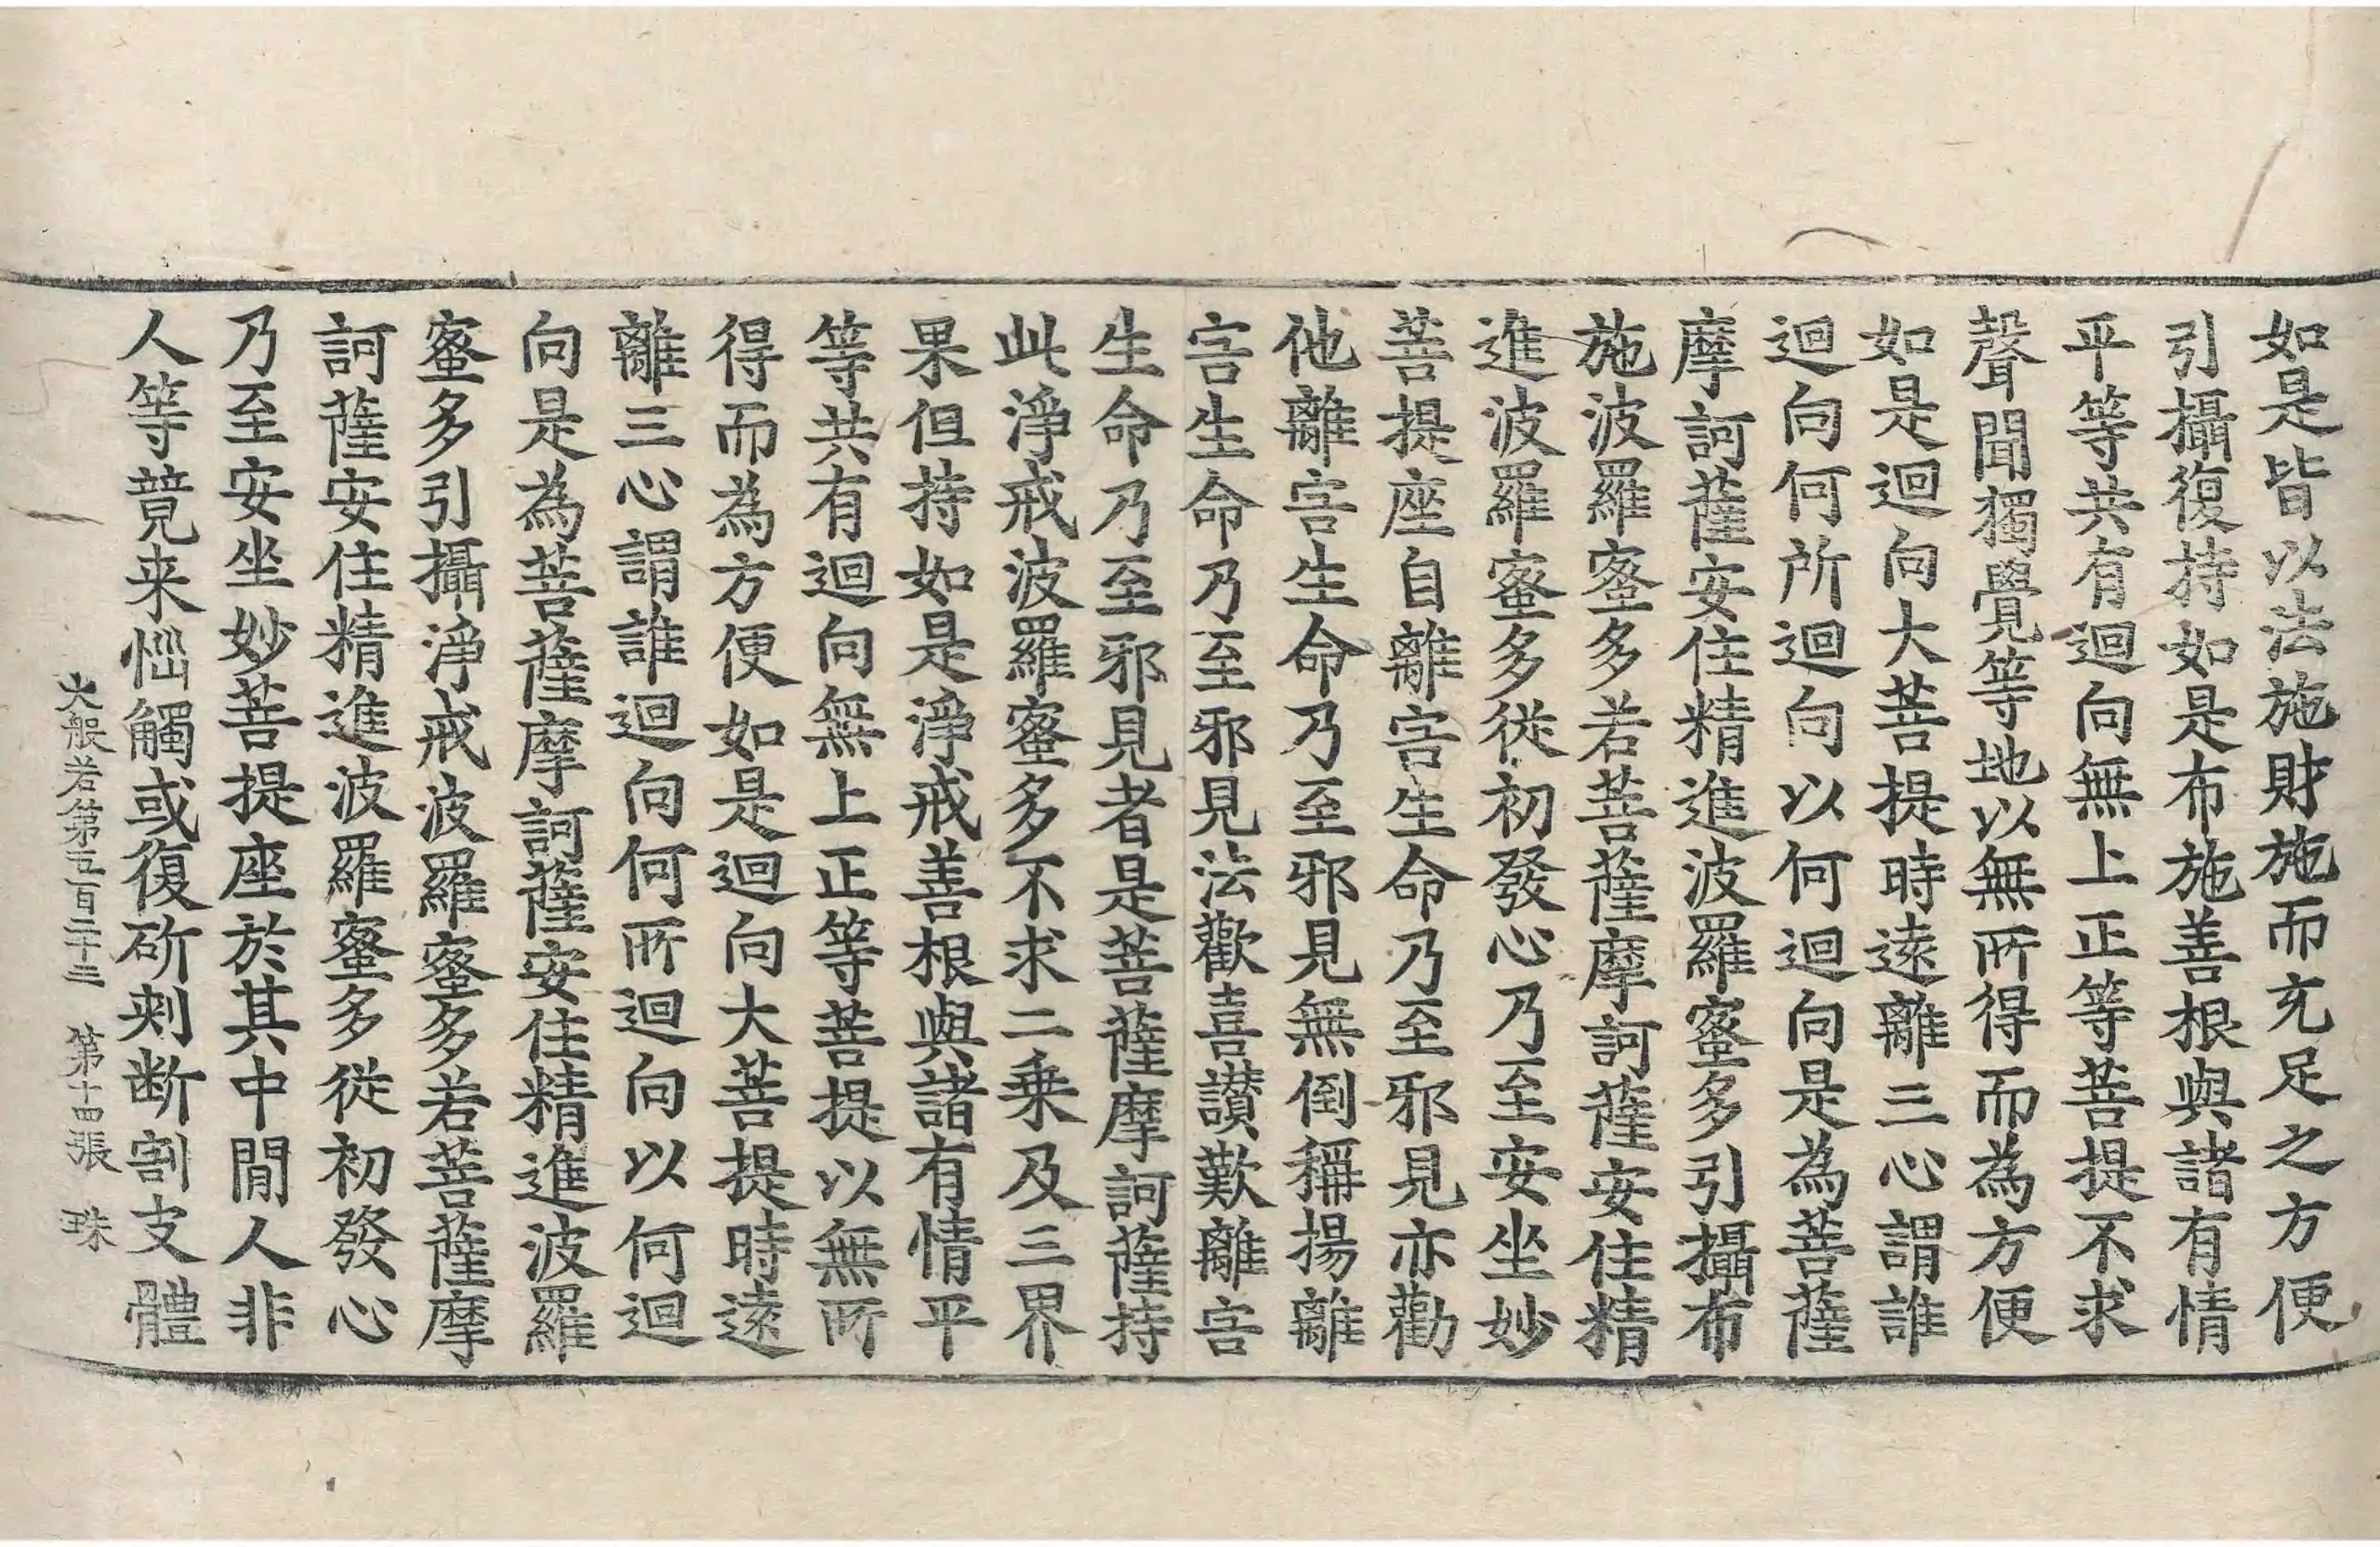 如是皆以法施財施而充足之方便
引攝復持如是布施善根與諸有情
平等共有迴向無上正等菩提不求
聲聞獨覺等地以無所得而為方便
如是迴向大菩提時遠離三心謂誰
迴向何所迴向以何迴向是為菩薩
摩訶薩安住精進波羅蜜多引攝布
施波羅蜜多若菩薩摩訶薩安住精
進波羅蜜多從初發心乃至安坐妙
菩提座自離害生命乃至邪見亦勸
他離害生命乃至邪見無倒稱揚離
害生命乃至邪見法歡喜讚歎離害
生命乃至邪見者是菩薩摩訶薩持
此淨戒波羅蜜多不求二乗及三界
果但持如是淨戒善根與諸有情平
等共有迴向無上正等菩提以無所
得而為方便如是迴向大菩提時遠
離三心謂誰迴向何所迴向以何迴
向是為菩薩摩訶薩安住精進波羅
蜜多引攝淨戒波羅蜜多若菩薩摩
訶薩安住精進波羅蜜多從初發心
乃至安坐妙菩提座於其中間人非
人等競来惱觸或復斫刺断割支體
大般若第五百二十三 第十四張 珠